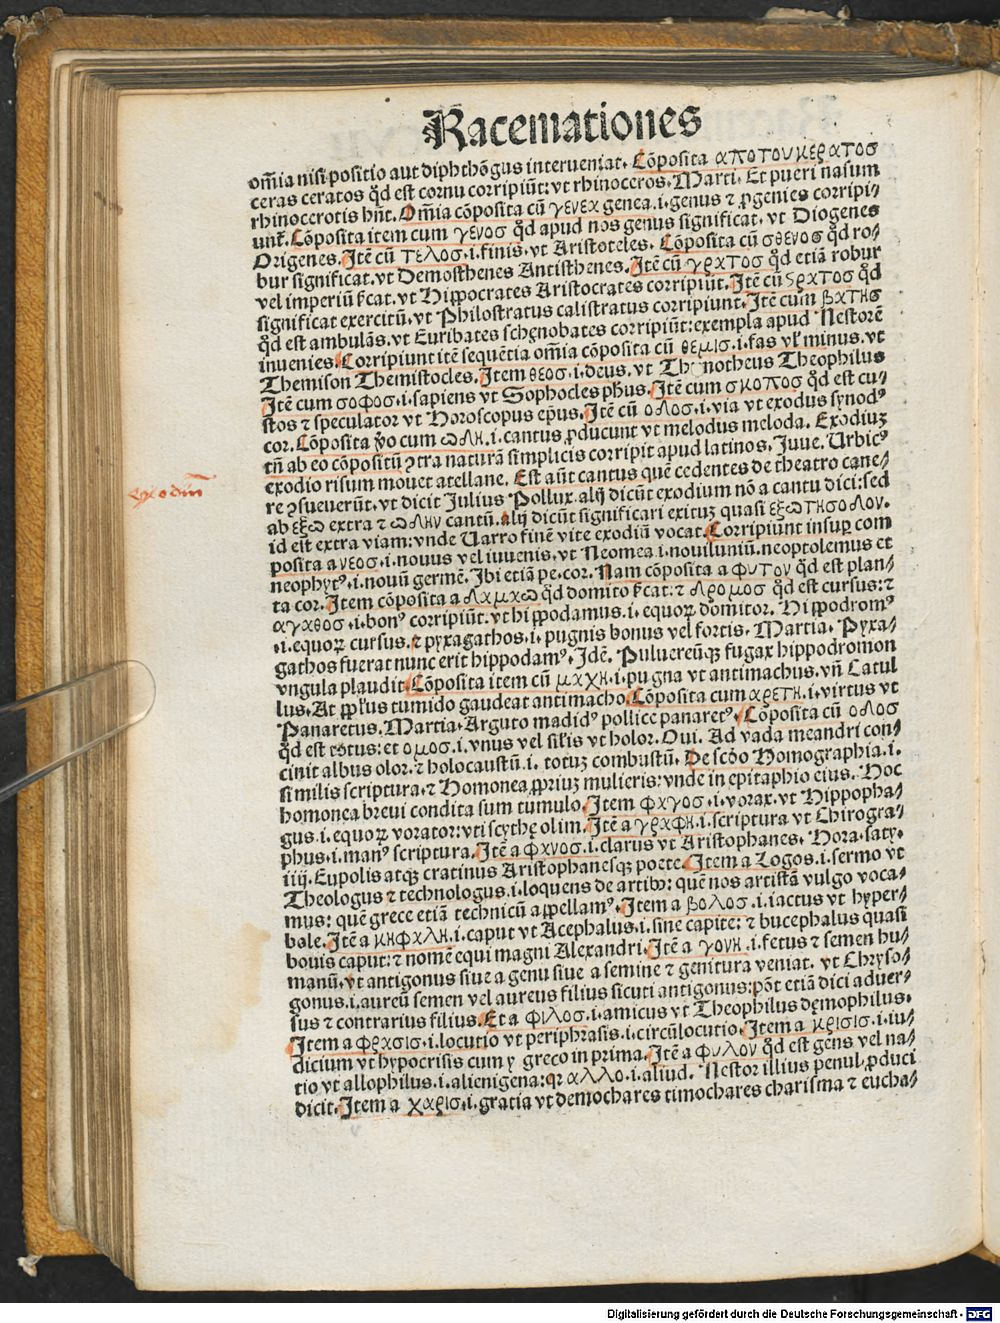 Racemationes
om̄ia nisi positio aut diphthōgus interueniat. Cōposita αποτουκερατοσ
ceras ceratos qd̄ est cornu corripiūt: vt rhinoceros. Marti. Et pueri nasum
rhinocerotis hn̄t. Om̄ia cōposita cū γενεα genea .i. genus ⁊ ꝓgenies corripi⸗
unt̄. Cōposita item cum γενοσ qd̄ apud nos genus significat. vt Diogenes
Origenes. Itē cū τελοσ .i. finis. vt Aristoteles. Cōposita cū σθενοσ qd̄ ro⸗
bur significat. vt Demosthenes Antisthenes. Itē cū γρατοσ qd̄ etiā robur
vel imperiū s̄cat. vt Hippocrates Aristocrates corripiūt. Itē cū ςρατοσ qd̄
significat exercitū. vt Philostratus calistratus corripiunt. Itē cum βατησ
qd̄ est ambulās. vt Euribates schęnobates corripiūt: exempla apud Nestorē
inuenies. Corripiunt itē sequētia om̄ia cōposita cū θεμισ .i. fas vl̓ minus. vt
Themison Themistocles. Item θεοσ .i. deus. vt Th notheus Theophilus
Itē cum σοφοσ .i. sapiens vt Sophocles ph̄us. Itē cum σκοποσ qd̄ est cu⸗
stos ⁊ speculator vt Horoscopus ep̄us. Itē cū ολοσ .i. via vt exodus synodꝰ
cor. Cōposita ꝟo cum ωλη .i. cantus ꝓducunt vt melodus meloda. Exodiuꝫ
tn̄ ab eo cōpositū ꝯtra naturā simplicis corripit apud latinos. Juue. Urbicꝰ
exodio risum mouet atellane. Est aūt cantus quē cedentes de theatro cane⸗
re ꝯsueuerūt. vt dicit Julius Pollux. alij dicūt exodium nō a cantu dici: sed
exodiū
ab εξω extra ⁊ ωλην cantū. alij dicūt significari exituꝫ quasi εξωτησολον.
id est extra viam: vnde Uarro finē vite exodiū vocat. Corripiunt insuꝑ com
posita a νεοσ .i. nouus vel iuuenis. vt Neomea .i. nouiluniū. neoptolemus et
neophytꝰ .i. nouū germē. Ibi etiā pe. cor. Nam cōposita a φυτον qd̄ est plan⸗
ta cor. Item cōposita a λαμαω qd̄ domito s̄cat: ⁊ λρομοσ qd̄ est cursus: ⁊
αγαθοσ .i. bonꝰ corripiūt. vt hippodamus .i. equoꝝ domitor. Hippodromꝰ
.i. equoꝝ cursus. ⁊ pyxagathos .i. pugnis bonus vel fortis. Martia. Pyxa⸗
gathos fuerat nunc erit hippodamꝰ. Idē. Puluereūqꝫ fugax hippodromon
vngula plaudit. Cōposita item cū μαχη .i. pugna vt antimachus. vn̄ Catul
lus. At pp̄lus tumido gaudeat antimacho. Cōposita cum αρετη .i. virtus vt
Panaretus. Martia. Arguto madidꝰ pollice panaretꝰ. Cōposita cū ολοσ
qd̄ est totus: et ομοσ .i. vnus vel sil̓is vt holor. Oui. Ad vada meandri con⸗
cinit albus olor. ⁊ holocaustū .i. totuꝫ combustū. De scd̄o Homographia .i.
similis scriptura. ⁊ Homonea ꝓpriuꝫ mulieris: vnde in epitaphio eius. Hoc
homonea breui condita sum tumulo. Item φαγοσ .i. vorax. vt Hippopha⸗
gus .i. equoꝝ vorator: vti scythę olim. Itē a γραφη .i. scriptura vt Chirogra⸗
phus .i. manꝰ scriptura. Itē a φανοσ .i. clarus vt Aristophanes. Hora. saty.
iiij. Eupolis atqꝫ cratinus Aristophanesqꝫ poete. Item a Logos .i. sermo vt
Theologus ⁊ technologus .i. loquens de artibꝰ: quē nos artistā vulgo voca⸗
mus: quē grece etiā technicū appellamꝰ. Item a βολοσ .i. iactus vt hyper⸗
bole. Itē a κηφαλη .i. caput vt Acephalus .i. sine capite: ⁊ bucephalus quasi
bouis caput: ⁊ nomē equi magni Alexandri. Itē a γονη .i. fetus ⁊ semen hu⸗
manū. vt antigonus siue a genu siue a semine ⁊ genitura veniat. vt Chryso⸗
gonus .i. aureū semen vel aureus filius sicuti antigonus: pōt etiā dici aduer⸗
sus ⁊ contrarius filius. Et a φιλοσ .i. amicus vt Theophilus dęmophilus.
Item a φρασισ .i. locutio vt periphrasis .i. circūlocutio. Item a κρισισ .i. iu⸗
dicium vt hypocrisis cum y greco in prima. Itē a φυλον qd̄ est gens vel na⸗
tio vt allophilus .i. alienigena: qꝛ αλλο .i. aliud. Nestor illius penul. ꝓduci
dicit. Item a χαρισ .i. gratia vt demochares timochares charisma ⁊ eucha⸗
Digitalisierung gefördert durch die Deutsche Forschungsgemeinschaft - DFG